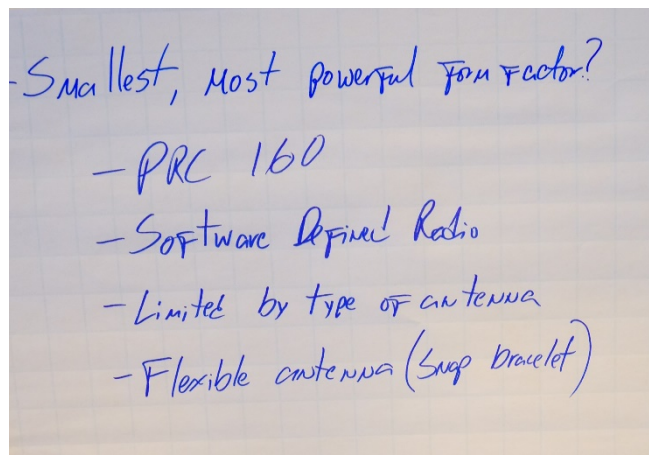 - Smallest, Most powerful Form Factor?
- PRC 160
- Software Defined Radio
- Limited by type of antenna
- Flexible antenna (Snap bracelet)